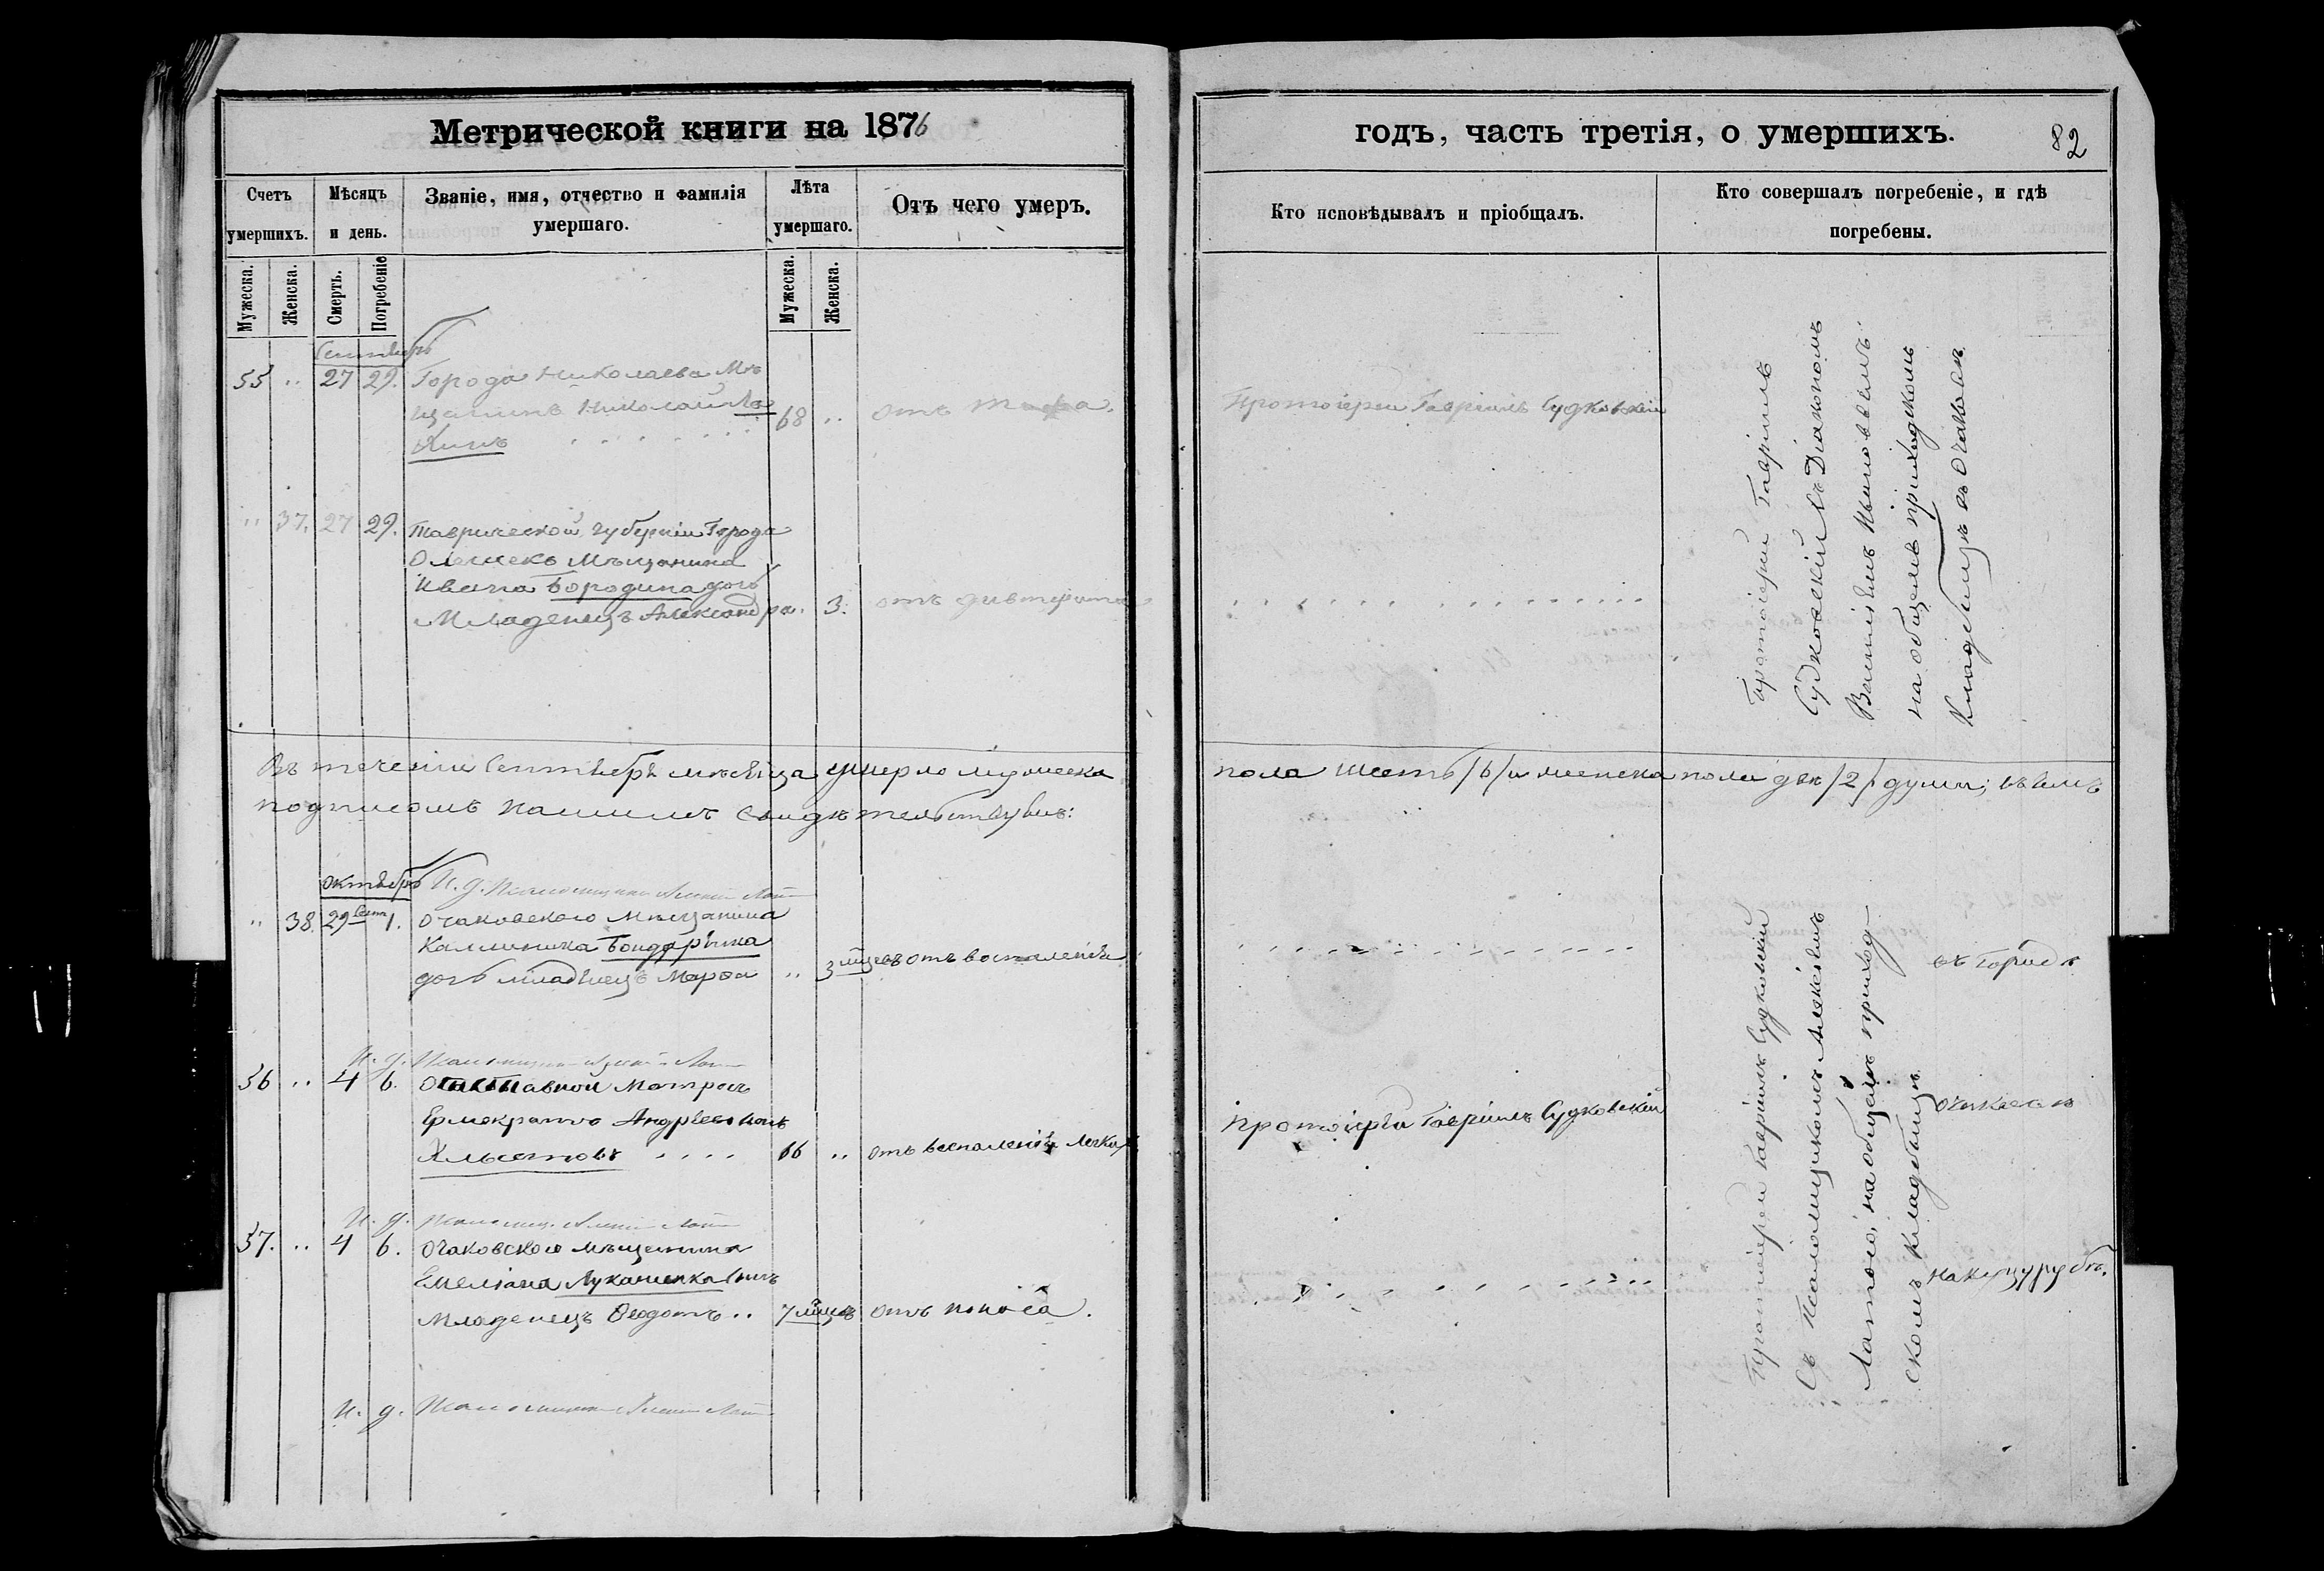 Метрической книги на 1876
Счетъ умершихъ.
Мѣсяцъ и день.
Званіе, имя, отчество и фамилія умершаго.
Лѣта умершаго.
Отъ чего умеръ.
Мужеска.
Женска.
Смерть.
Погребеніе
Мужеска.
Женска.
Сентябрь
55 .. 27 29. Города Николаева Мѣ
щанинъ Николай
68 .. отъ
" 37. 27 29. Таврической губерніи Города
Олешекъ Мѣщанина
Ивана Бородина дочь
Младенецъ Александра. 3. отъ дифтерита
Въ теченіи Сентября мѣсяца умерло мужеска
подписомъ нашимъ свидѣтельствуемъ:
Октябрь И. д. Псаломщика
" 38. 29 Сент 1. Очаковскаго Мѣщанина
Каллиника Бондаренка
дочь младенецъ Марѳа .. 3 мцевъ отъ воспаленія
И. д.
56 .. 4 6. Отставной Матросъ
Андреевъ
66 .. отъ воспаленія легкихъ
И. д.
57. .. 4 6. Очаковскаго мѣщанина
Емеліана Лукашенка сынъ
Младенецъ Ѳеодотъ .. 7 мцевъ отъ поноса.
И. д.
годъ, часть третія, о умершихъ.
82
Кто исповѣдывалъ и пріобщалъ.
Кто совершалъ погребеніе, и гдѣ
погребены.
Протоіерей Гавріилъ Судковскій
Протоіерей Гавріилъ
Судковскій съ Діакономъ
на общемъ приходскомъ
Кладбищѣ въ Очаковѣ
пола шесть /6/ и женска пола двѣ /2/ души; въ чемъ
Протоіерей Гавріилъ Судковскій
Протоіерей Гавріилъ Судковскій
Съ Псаломщикомъ Алексѣемъ
на общемъ приход
скомъ кладбищѣ
въ Городѣ
Очаковѣ
на Куцурубѣ.